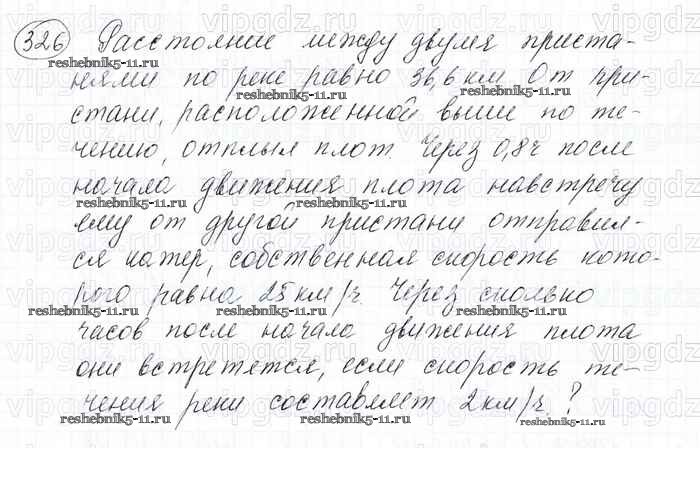 326 Расстояние между двумя приста-
нями по реке равно 36,6 км. От при-
стани, расположенной выше по те-
чению, отплыл плот. Через 0,8 ч после
начала движения плота навстречу
ему от другой пристани отправил-
ся катер, собственная скорость кото-
рого равна 25 км/ч. Через сколько
часов после начала движения плота
они встретятся, если скорость те-
чения реки составляет 2 км/ч.?
vipgdz.ru
reshebnik5-11.ru